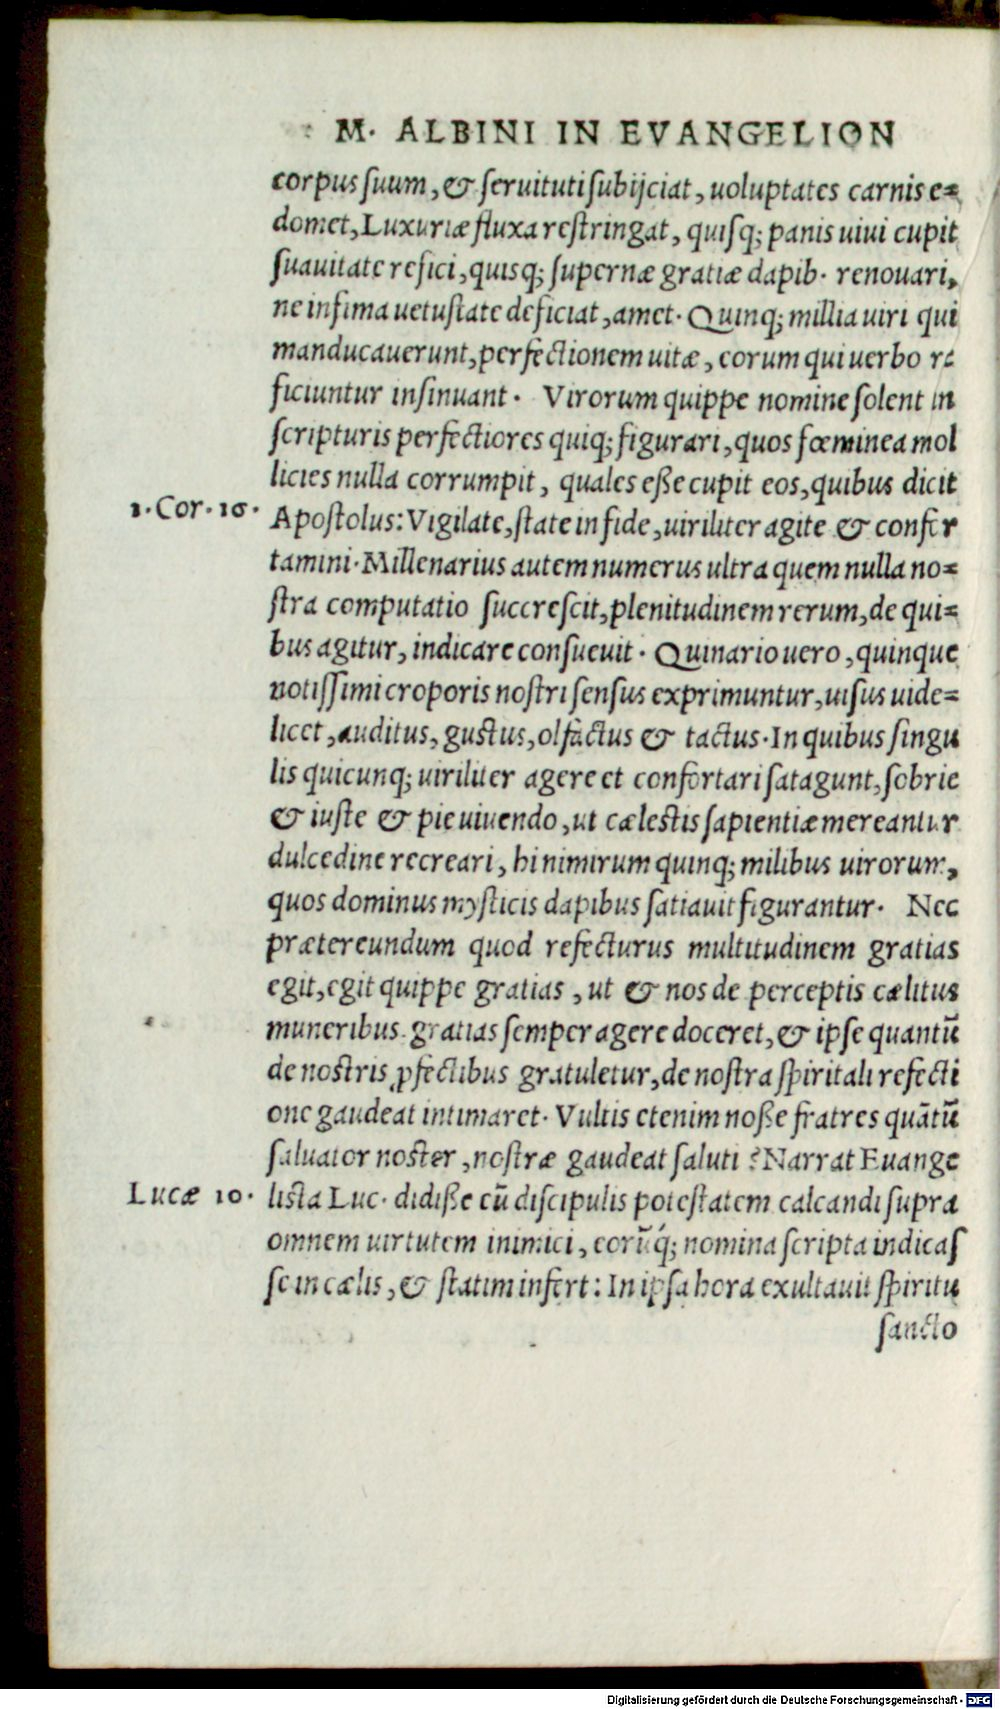 M. ALBINI IN EVANGELION
corpus suum, & seruituti subijciat, uoluptates carnis e=
domet, Luxuriæ fluxa restringat, quisq; panis uiui cupit
suauitate refici, quisq; supernæ gratiæ dapib. renouari,
ne infima uetustate deficiat, amet. Quinq; millia uiri qui
manducauerunt, perfectionem uitæ, eorum qui uerbo re
ficiuntur insinuant. Virorum quippe nomine solent in
scripturis perfectiores quiq; figurari, quos fœminea mol
licies nulla corrumpit, quales eße cupit eos, quibus dicit
1. Cor. 16. Apostolus: Vigilate, state in fide, uiriliter agite & confor
tamini. Millenarius autem numerus ultra quem nulla no=
stra computatio succrescit, plenitudinem rerum, de qui=
bus agitur, indicare consueuit. Quinario uero, quinque
notissimi croporis nostri sensus exprimuntur, uisus uide=
licet, auditus, gustus, olfactus & tactus. In quibus singu
lis quicunq; uiriliter agere et confortari satagunt, sobrie
& iuste & pie uiuendo, ut cælestis sapientiæ mereantur
dulcedine recreari, hi nimirum quinq; milibus uirorum,
quos dominus mysticis dapibus satiauit figurantur. Nec
prætereundum quod refecturus multitudinem gratias
egit, egit quippe gratias, ut & nos de perceptis cælitus
muneribus gratias semper agere doceret, & ipse quantũ
de nostris ꝓfectibus gratuletur, de nostra spiritali refecti
one gaudeat intimaret. Vultis etenim noße fratres quãtũ
saluator noster, nostræ gaudeat saluti? Narrat Euange
Lucæ 10. lista Luc. didiße cũ discipulis potestatem calcandi supra
omnem uirtutem inimici, eorũq́; nomina scripta indicas
se in cælis, & statim infert: In ipsa hora exultauit spiritu
sancto
Digitalisierung gefördert durch die Deutsche Forschungsgemeinschaft - DFG